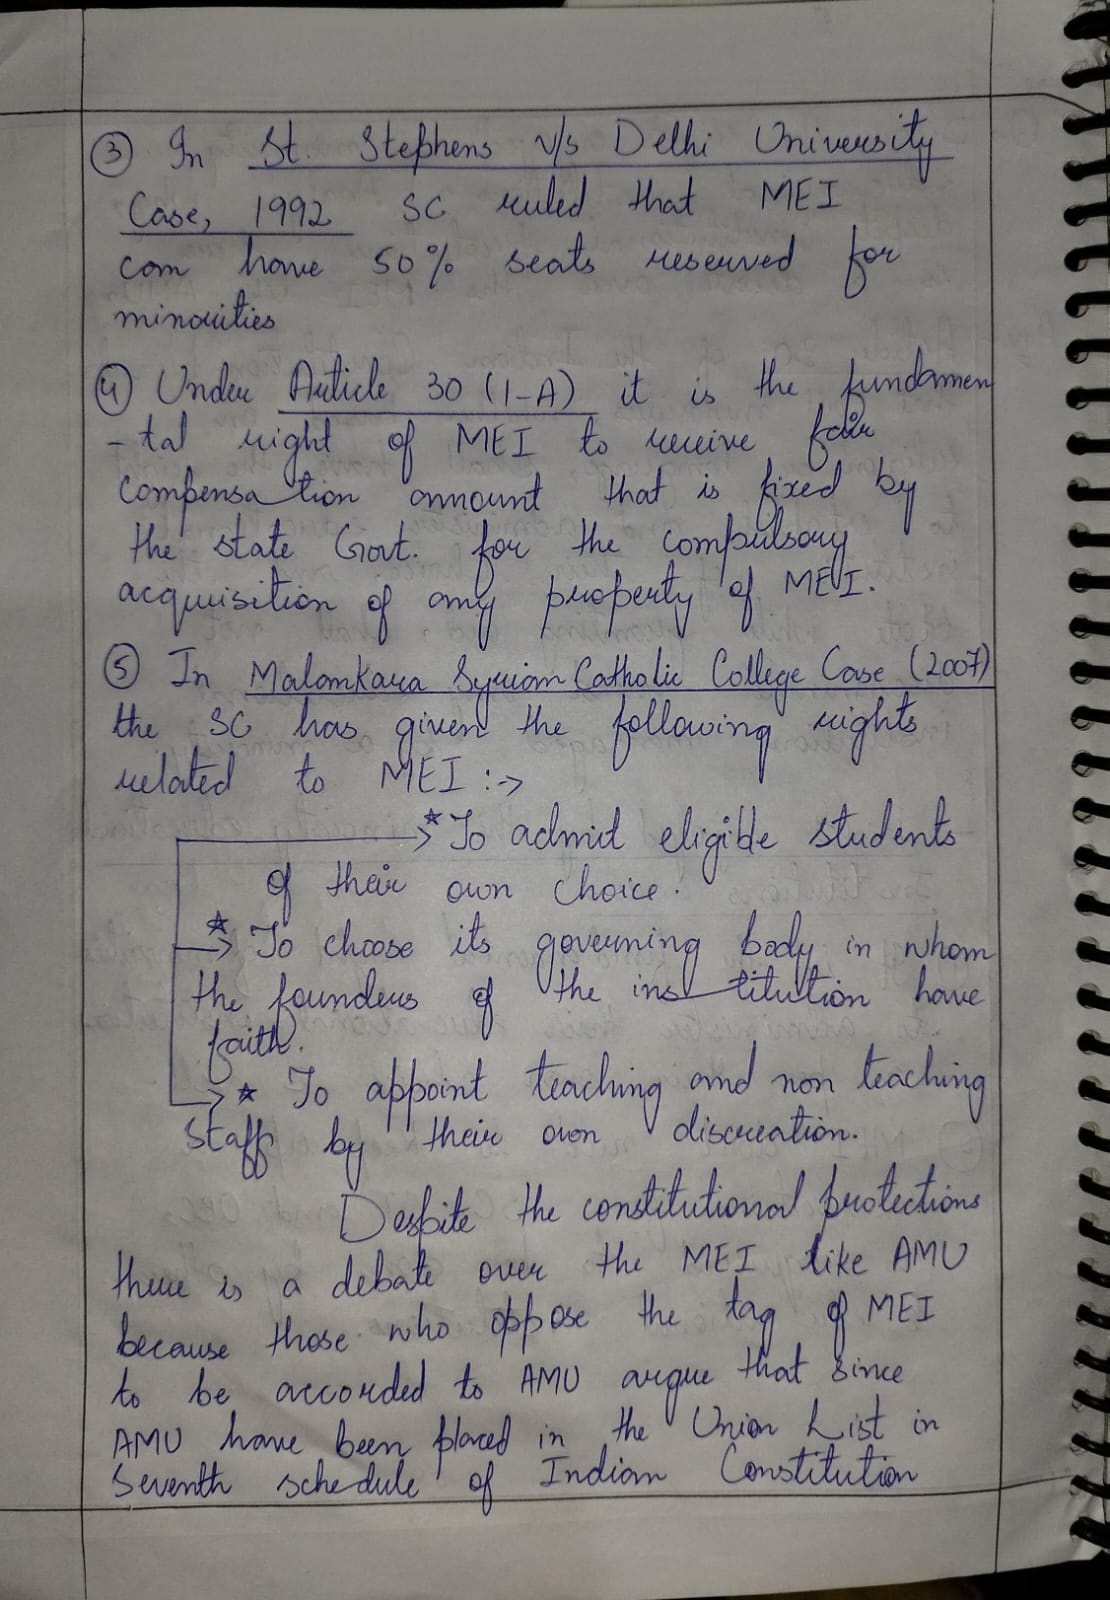 ③ In St. Stephens v/s Delhi University
Case, 1992 SC ruled that MEI
can have 50% seats reserved for
minorities
④ Under Article 30 (1-A) it is the fundamen
-tal right of MEI to receive fair
compensation amount that is fixed by
the state Govt. for the compulsory
acquisition of any property of MEI.
⑤ In Malankara Syrian Catholic College Case (2007)
the SC has given the following rights
related to MEI :->
* To admit eligible students
of their own choice.
* To choose its governing body in whom
the founders of the institution have
faith.
* To appoint teaching and non teaching
staff by their own discreation.
Despite the constitutional protections
there is a debate over the MEI like AMU
because those who oppose the tag of MEI
to be accorded to AMU argue that since
AMU have been placed in the Union List in
Seventh schedule of Indian Constitution